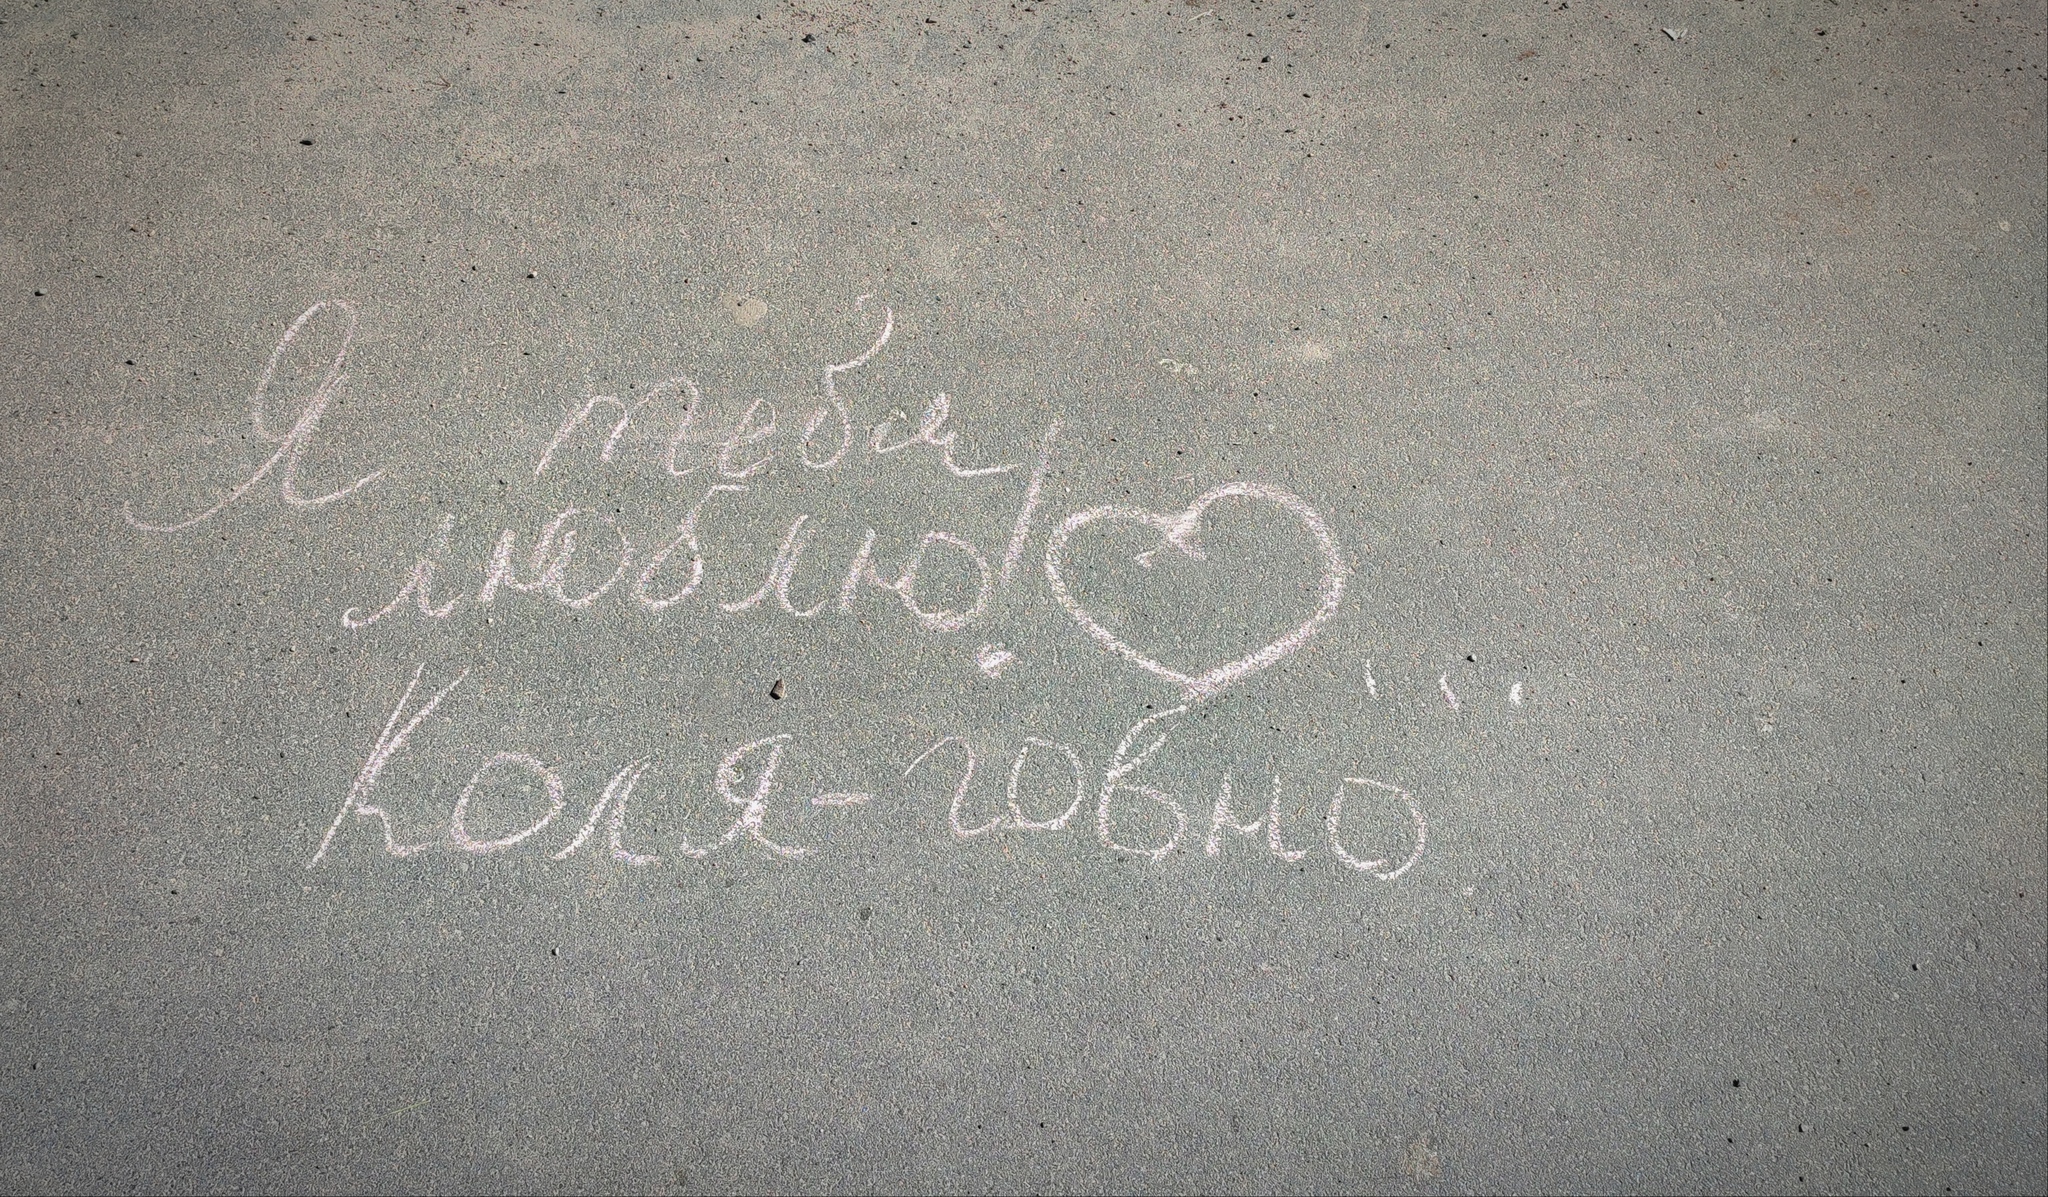 Я тебя
люблю!
Коля - говно